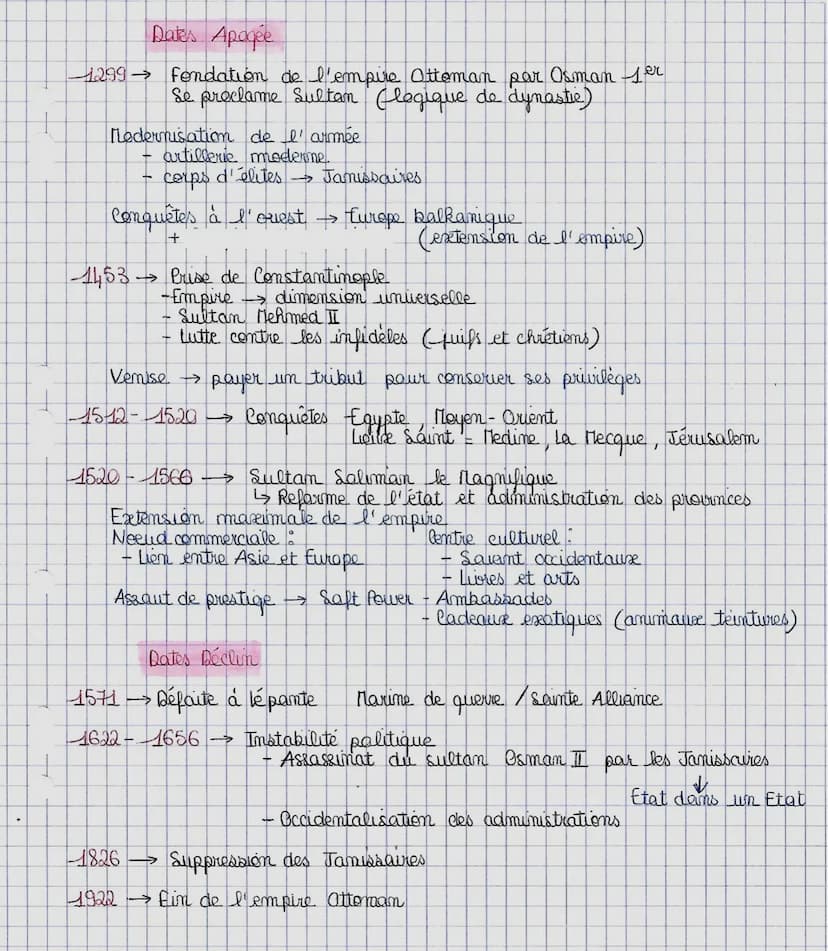 Dates Apogée
1299 → Fondation de l'empire Ottoman par Osman 1er
Se proclame Sultan (logique de dynastie)
Modernisation de l'armée
- artillerie moderne.
- corps d'élites → Janissaires
Conquêtes à l'ouest → Europe balkanique
+ (extension de l'empire)
1453 → Prise de Constantinople
- Empire → dimension universelle
- Sultan Mehmed II
- Lutte contre les infidèles (juifs et chrétiens)
Venise → payer un tribut pour conserver ses privilèges
1512 - 1520 → Conquêtes Egypte, Moyen-Orient
Lieux Saint = Medine, La Mecque, Jérusalem
1520 - 1566 → Sultan Soliman le Magnifique
↳ Reforme de l'état et administration des provinces
Extension maximale de l'empire
Noeud commerciale : Centre culturel :
- Lien entre Asie et Europe - Savant occidentaux
- Livres et arts
Assaut de prestige → Soft Power - Ambassades
- Cadeaux exotiques (animaux teintures)
Dates Déclin
1571 → Défaite à lépante Marine de guerre / Sainte Alliance
1622 - 1656 → Instabilité politique
- Assassinat du sultan Osman II par les Janissaires
↓
Etat dans un Etat
- Occidentalisation des administrations
1826 → Suppression des Janissaires
1922 → Fin de l'empire Ottoman